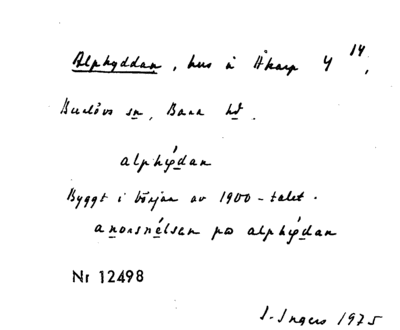 Alphyddan, hus å Åkarp 4 14,
Burlövs sn, Bara hd.
alphýdan
Byggt i början av 1900-talet.
anorsnélsen på alphýdan
Nr 12498
I. Ingers 1975